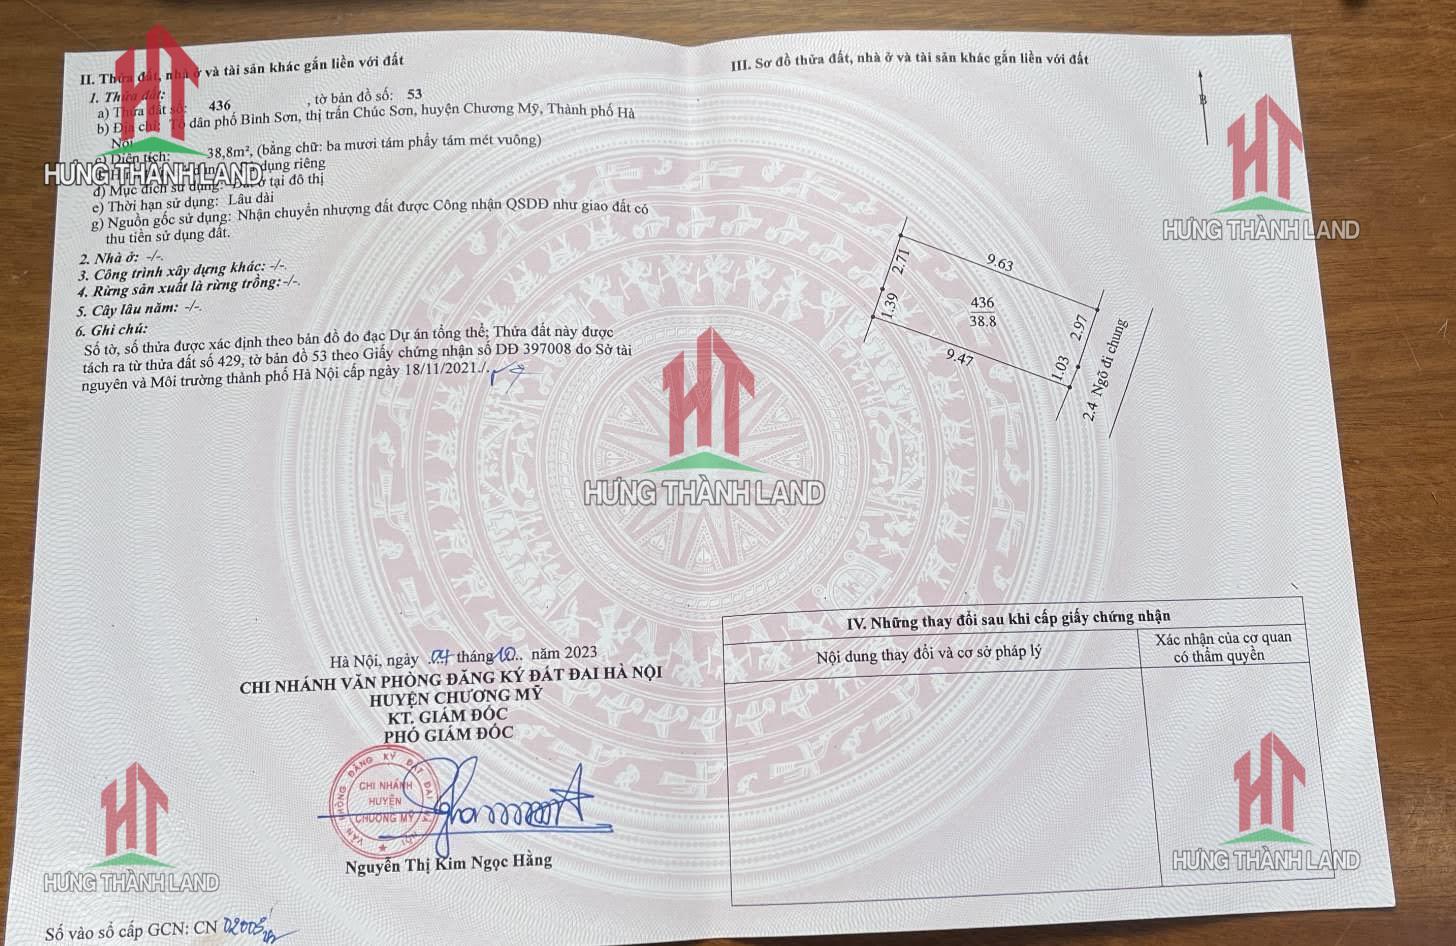 II. Thửa đất, nhà ở và tài sản khác gắn liền với đất
1. Thửa đất:
a) Thửa đất số: 436 , tờ bản đồ số: 53
b) Địa chỉ: Tổ dân phố Bình Sơn, thị trấn Chúc Sơn, huyện Chương Mỹ, Thành phố Hà
Nội
c) Diện tích: 38,8m², (bằng chữ: ba mươi tám phẩy tám mét vuông)
dụng riêng
đ) Mục đích sử dụng: Đất ở tại đô thị
e) Thời hạn sử dụng: Lâu dài
g) Nguồn gốc sử dụng: Nhận chuyển nhượng đất được Công nhận QSDĐ như giao đất có
thu tiền sử dụng đất.
2. Nhà ở: -/-.
3. Công trình xây dựng khác: -/-.
4. Rừng sản xuất là rừng trồng: -/-.
5. Cây lâu năm: -/-.
6. Ghi chú:
Số tờ, số thửa được xác định theo bản đồ đo đạc Dự án tổng thể; Thửa đất này được
tách ra từ thửa đất số 429, tờ bản đồ 53 theo Giấy chứng nhận số DĐ 397008 do Sở tài
nguyên và Môi trường thành phố Hà Nội cấp ngày 18/11/2021./.
Hà Nội, ngày 04 tháng 10 năm 2023
CHI NHÁNH VĂN PHÒNG ĐĂNG KÝ ĐẤT ĐAI HÀ NỘI
HUYỆN CHƯƠNG MỸ
KT. GIÁM ĐỐC
PHÓ GIÁM ĐỐC
VĂN PHÒNG ĐĂNG KÝ ĐẤT ĐAI HÀ NỘI
CHI NHÁNH
HUYỆN
CHƯƠNG MỸ
Nguyễn Thị Kim Ngọc Hằng
Số vào sổ cấp GCN: CN
III. Sơ đồ thửa đất, nhà ở và tài sản khác gắn liền với đất
B
2.71
9.63
1.39
436
38.8
2.97
9.47
1.03
2.4 Ngõ đi chung
IV. Những thay đổi sau khi cấp giấy chứng nhận
Nội dung thay đổi và cơ sở pháp lý
Xác nhận của cơ quan
có thẩm quyền
HƯNG THÀNH LAND
HƯNG THÀNH LAND
HƯNG THÀNH LAND
HƯNG THÀNH LAND
HƯNG THÀNH LAND